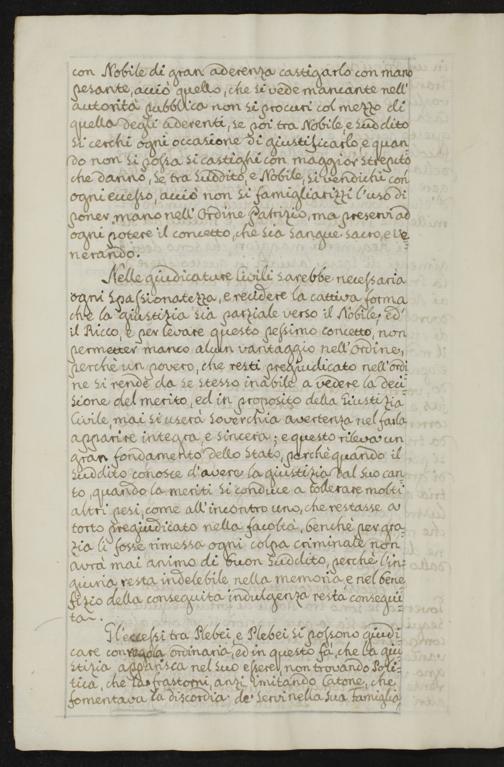 con Nobile di gran aderenza castigarlo con mano
pesante, acciò quello, che si vede mancante nell'
autorità pubblica non si procuri col mezzo di
quella degli aderenti, se poi tra Nobile, e Suddito
si cerchi ogni occasione di giustificarlo, e quan=
do non si possa si castighi con maggior strepito
che danno, se tra Suddito, e Nobile, si vendichi con
ogni eccesso, acciò non si famigliarizzi l'uso di
poner mano nell'Ordine Patrizio, ma preservi ad
ogni potere il concetto, che sia sangue sacro, e Ve=
nerando.
Nelle giudicature Civili sarebbe necessaria
ogni spassionatezza, e recidere la cattiva forma
che la giustizia sia parziale verso il Nobile, ed'
il Ricco, e per levare questo pessimo concetto, non
permetter manco alcun vantaggio nell'Ordine,
perchè un povero, che resti pregiudicato nell'ordi=
ne si rende da se stesso inabile a vedere la deci=
sione del merito, ed in proposito della Giustizia
Civile, mai si userà soverchia avertenza nel farla
apparire integra, e sincera; e questo rileva un
gran fondamento dello Stato, perchè quando il
Suddito conosce d'avere la giustizia dal suo can=
to, quando la meriti si conduce a tolerare molti
altri pesi, come all'incontro uno, che restasse a
torto pregiudicato nella facoltà, benchè per gra=
zia li fosse rimessa ogni colpa criminale non
avrà mai animo di buon Suddito, perchè l'in=
giuria resta indelebile nella memoria, e nel bene=
fizio della conseguita indulgenza resta consegui=
ta.
Gl'eccessi tra Plebei, e Plebei si possono giudi=
care con regola ordinaria, ed in questo fà, che la giu=
stizia apparisca nel suo essere, non trovando Poli=
tica, che la frastorni, anzi imitando Catone, che
fomentava la discordia de' servi nella sua famiglia